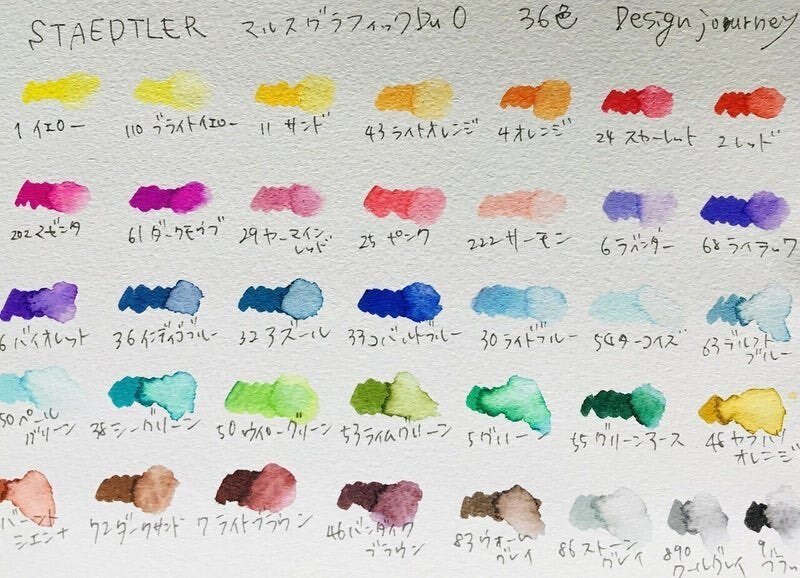 STAEDTLER マルスグラフィックDuO 36色 Design journey
1 イエロー 110 ブライトイエロー 11 サンド 43 ライトオレンジ 4 オレンジ 24 スカーレット 2 レッド
202 マゼンタ 61 ダークモウブ 29 ヤーマインレッド 25 ピンク 222 サーモン 6 ラベンダー 68 ライラック
6 バイオレット 36 インディゴブルー 32 アズール 33 コバルトブルー 30 ライドブルー 54 ターコイズ 63 デルフトブルー
50 ペールグリーン 38 シーグリーン 50 ウイローグリーン 53 ライムグリーン 5 グリーン 55 グリーンアース 48 オレンジ
バーントシエンナ 72 ダークサンド 7 ライトブラウン 46 バンダイクブラウン 83 ウォームグレイ 86 ストーングレイ 890 クールグレイ 9 ブラッ